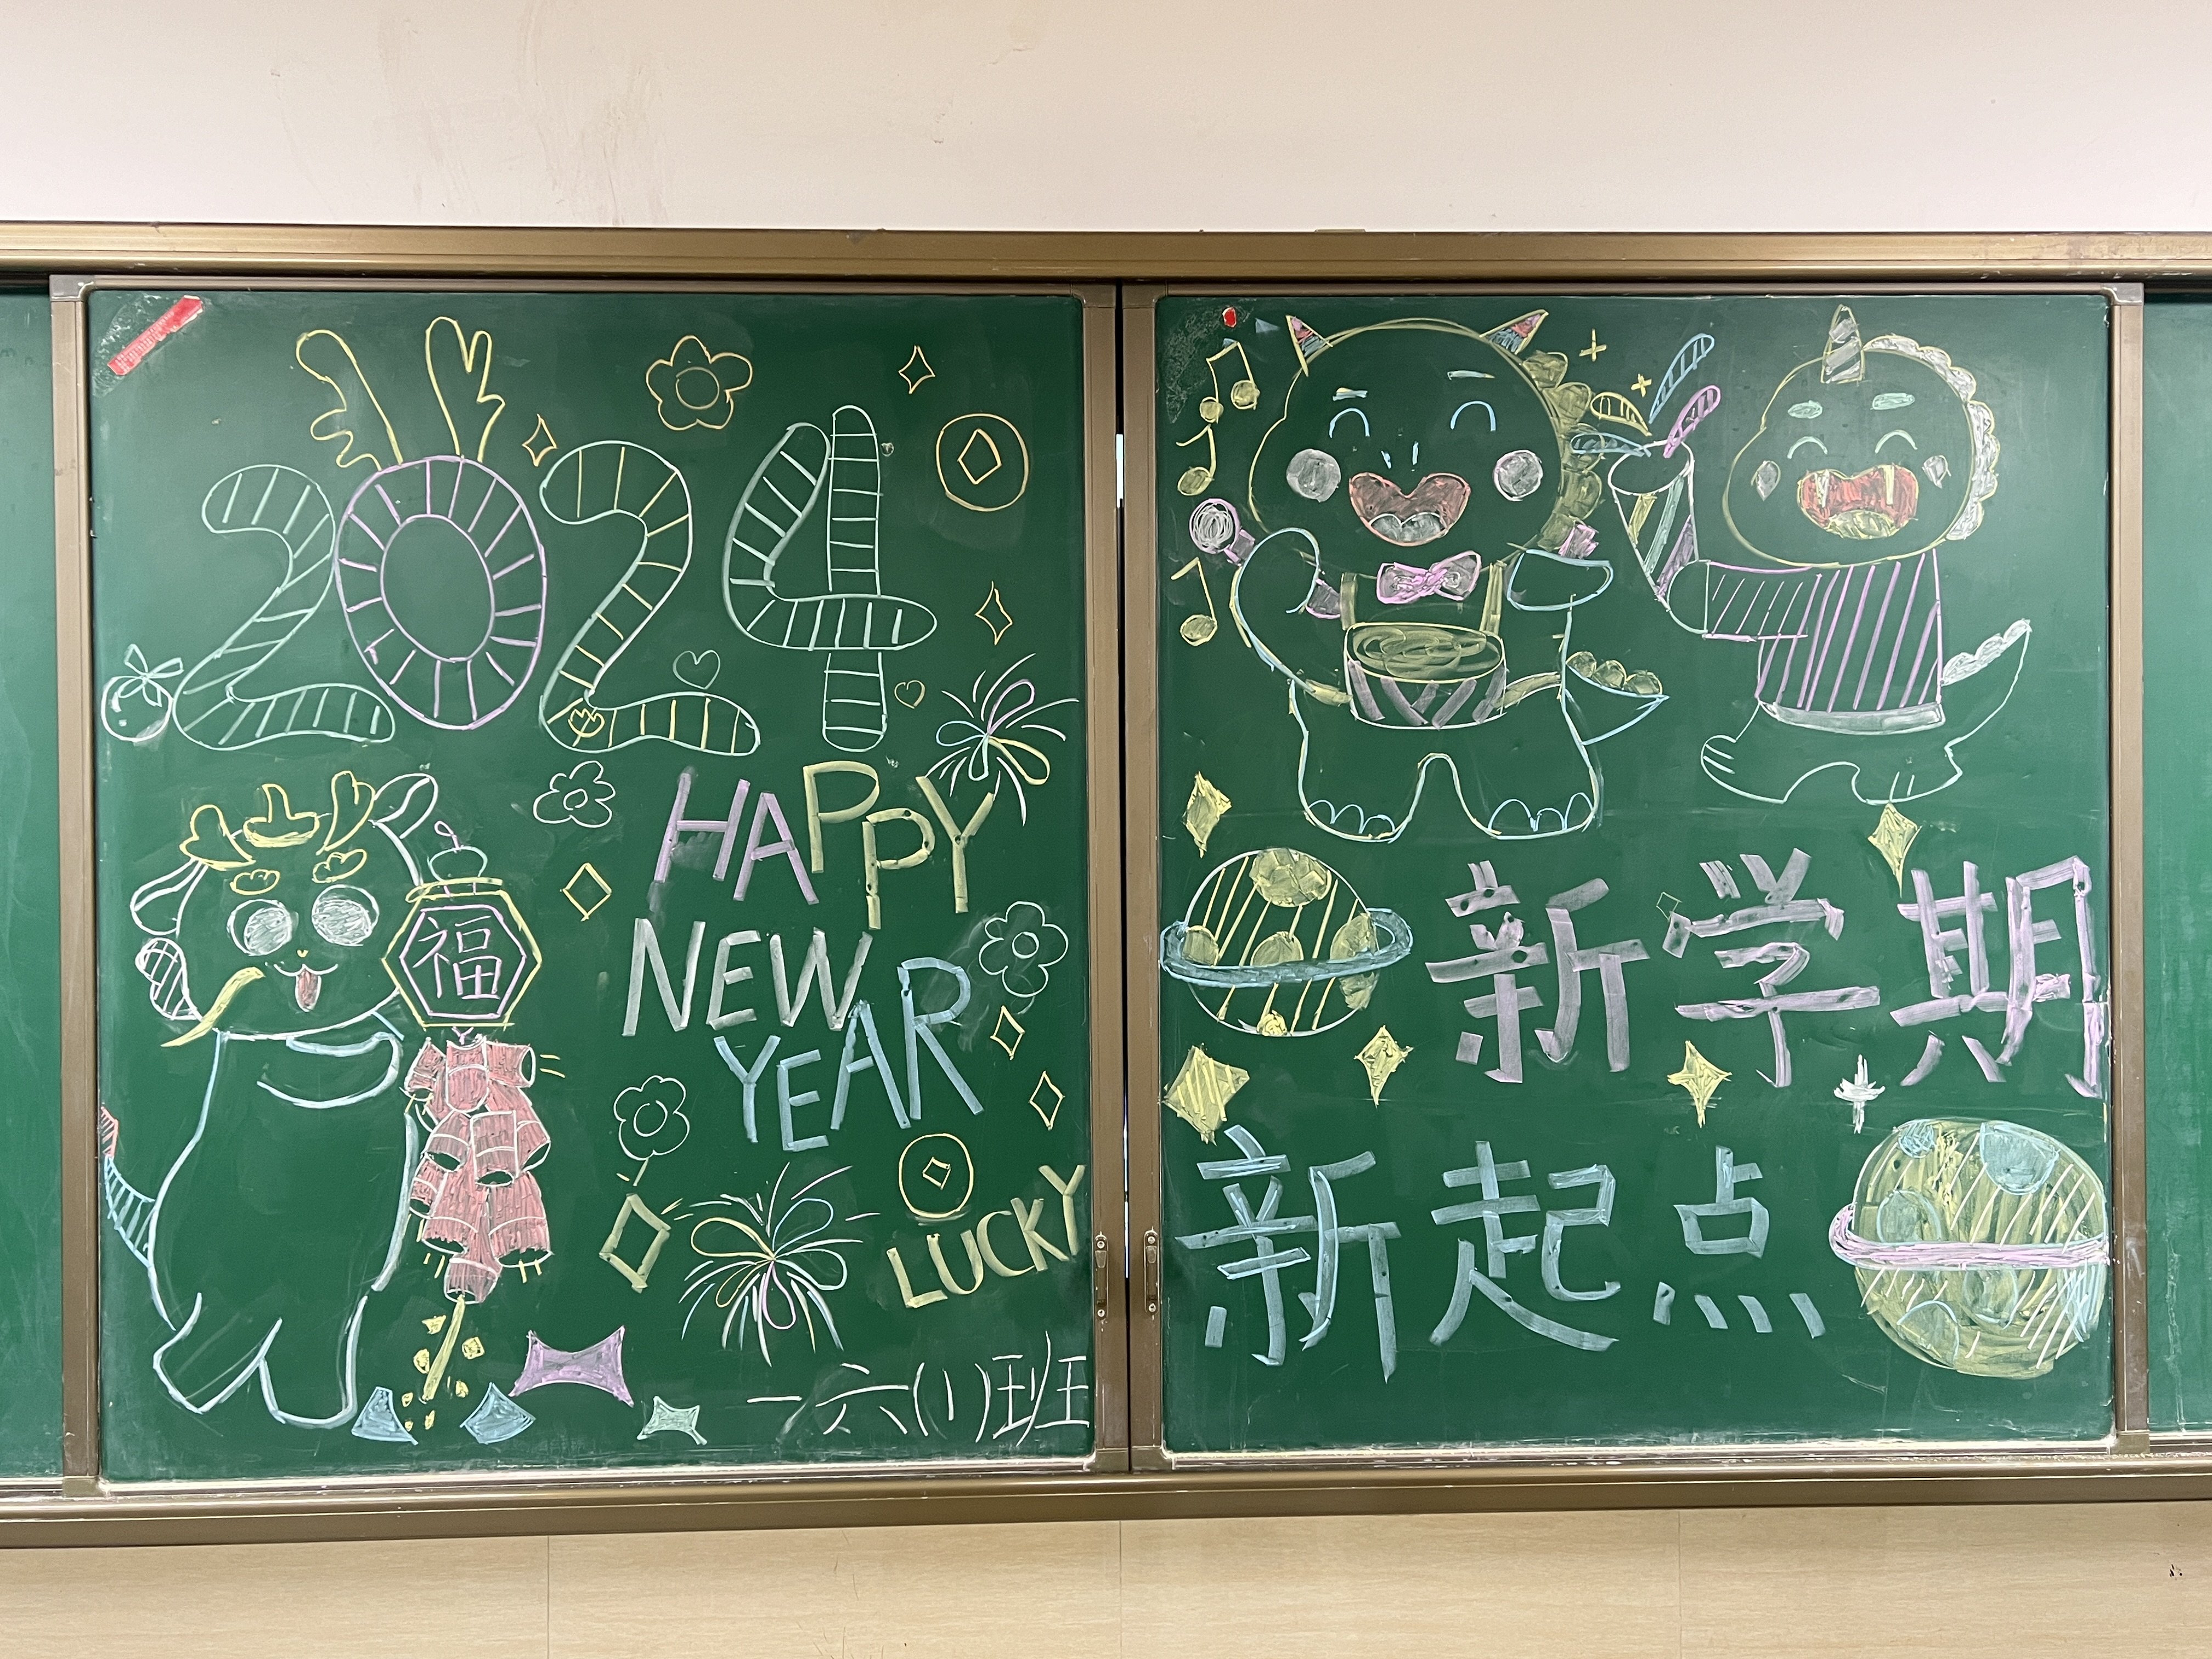 2024
福
HAPPY
NEW
YEAR
LUCKY
一六(1)班
新学期
新起点